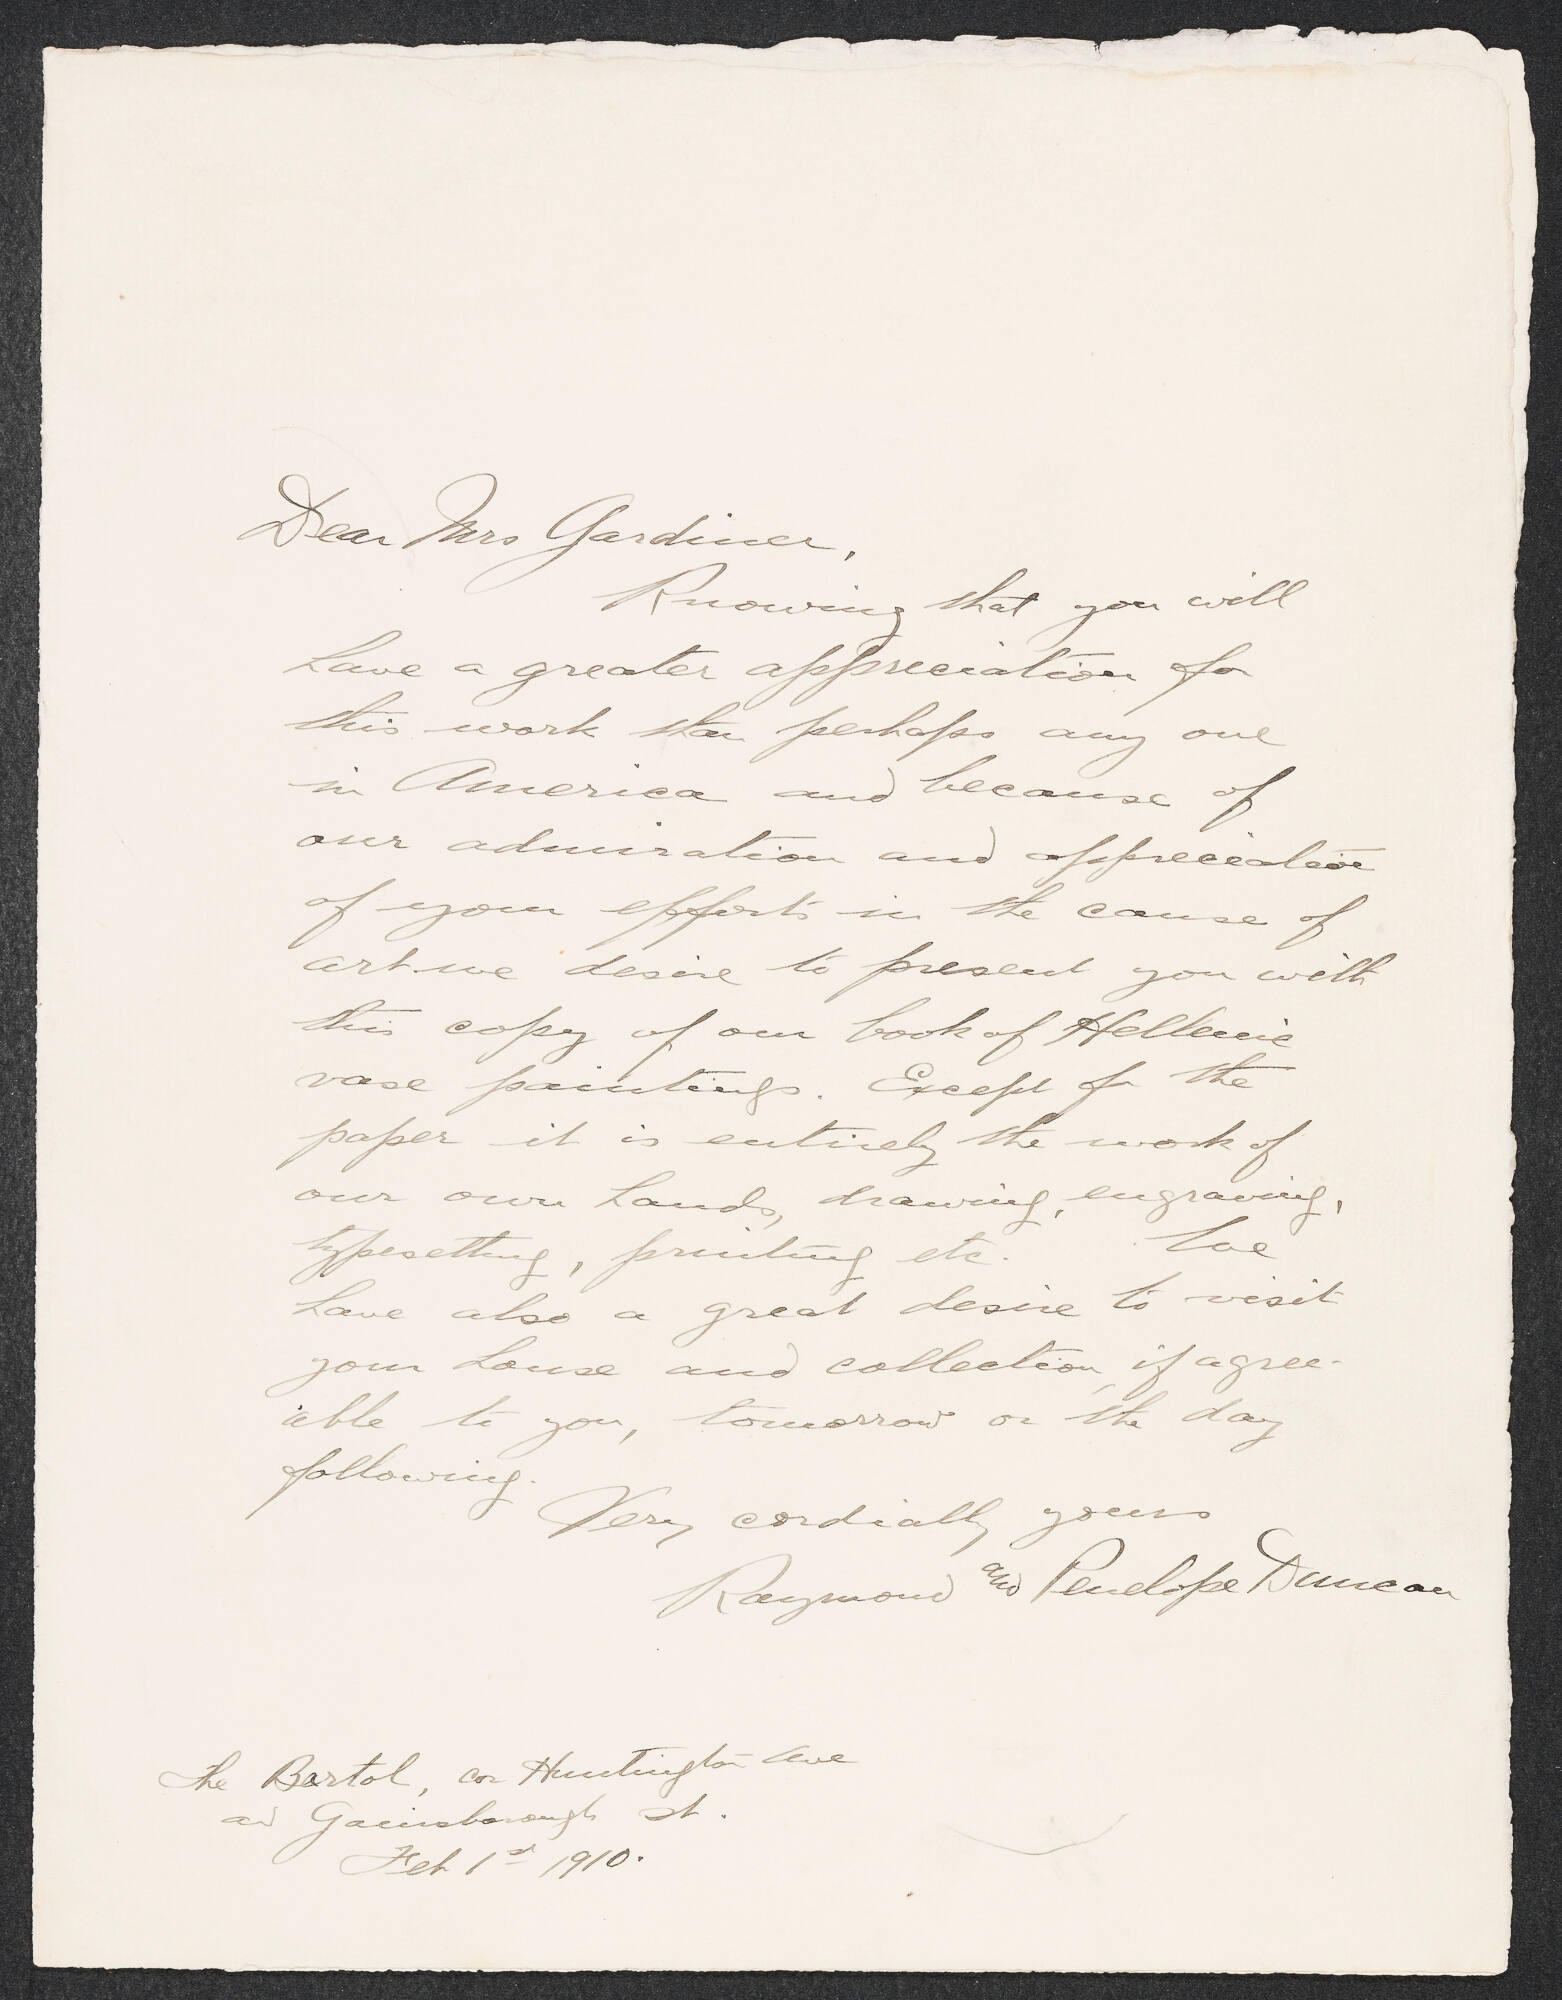 Dear Mrs Gardiner,
Knowing that you will
have a greater appreciation for
this work than perhaps any one
in America and because of
our admiration and appreciation
of your efforts in the cause of
art we desire to present you with
this copy of our book of Hellenic
vase paintings. Except for the
paper it is entirely the work of
our own hands, drawing, engraving,
typesetting, printing etc. We
have also a great desire to visit
your house and collection, if agree-
able to you, tomorrow or the day
following.
Very cordially yours
Raymond and Penelope Duncan
The Bartol, cor Huntington Ave
and Gainsborough st.
Feb 1st 1910.